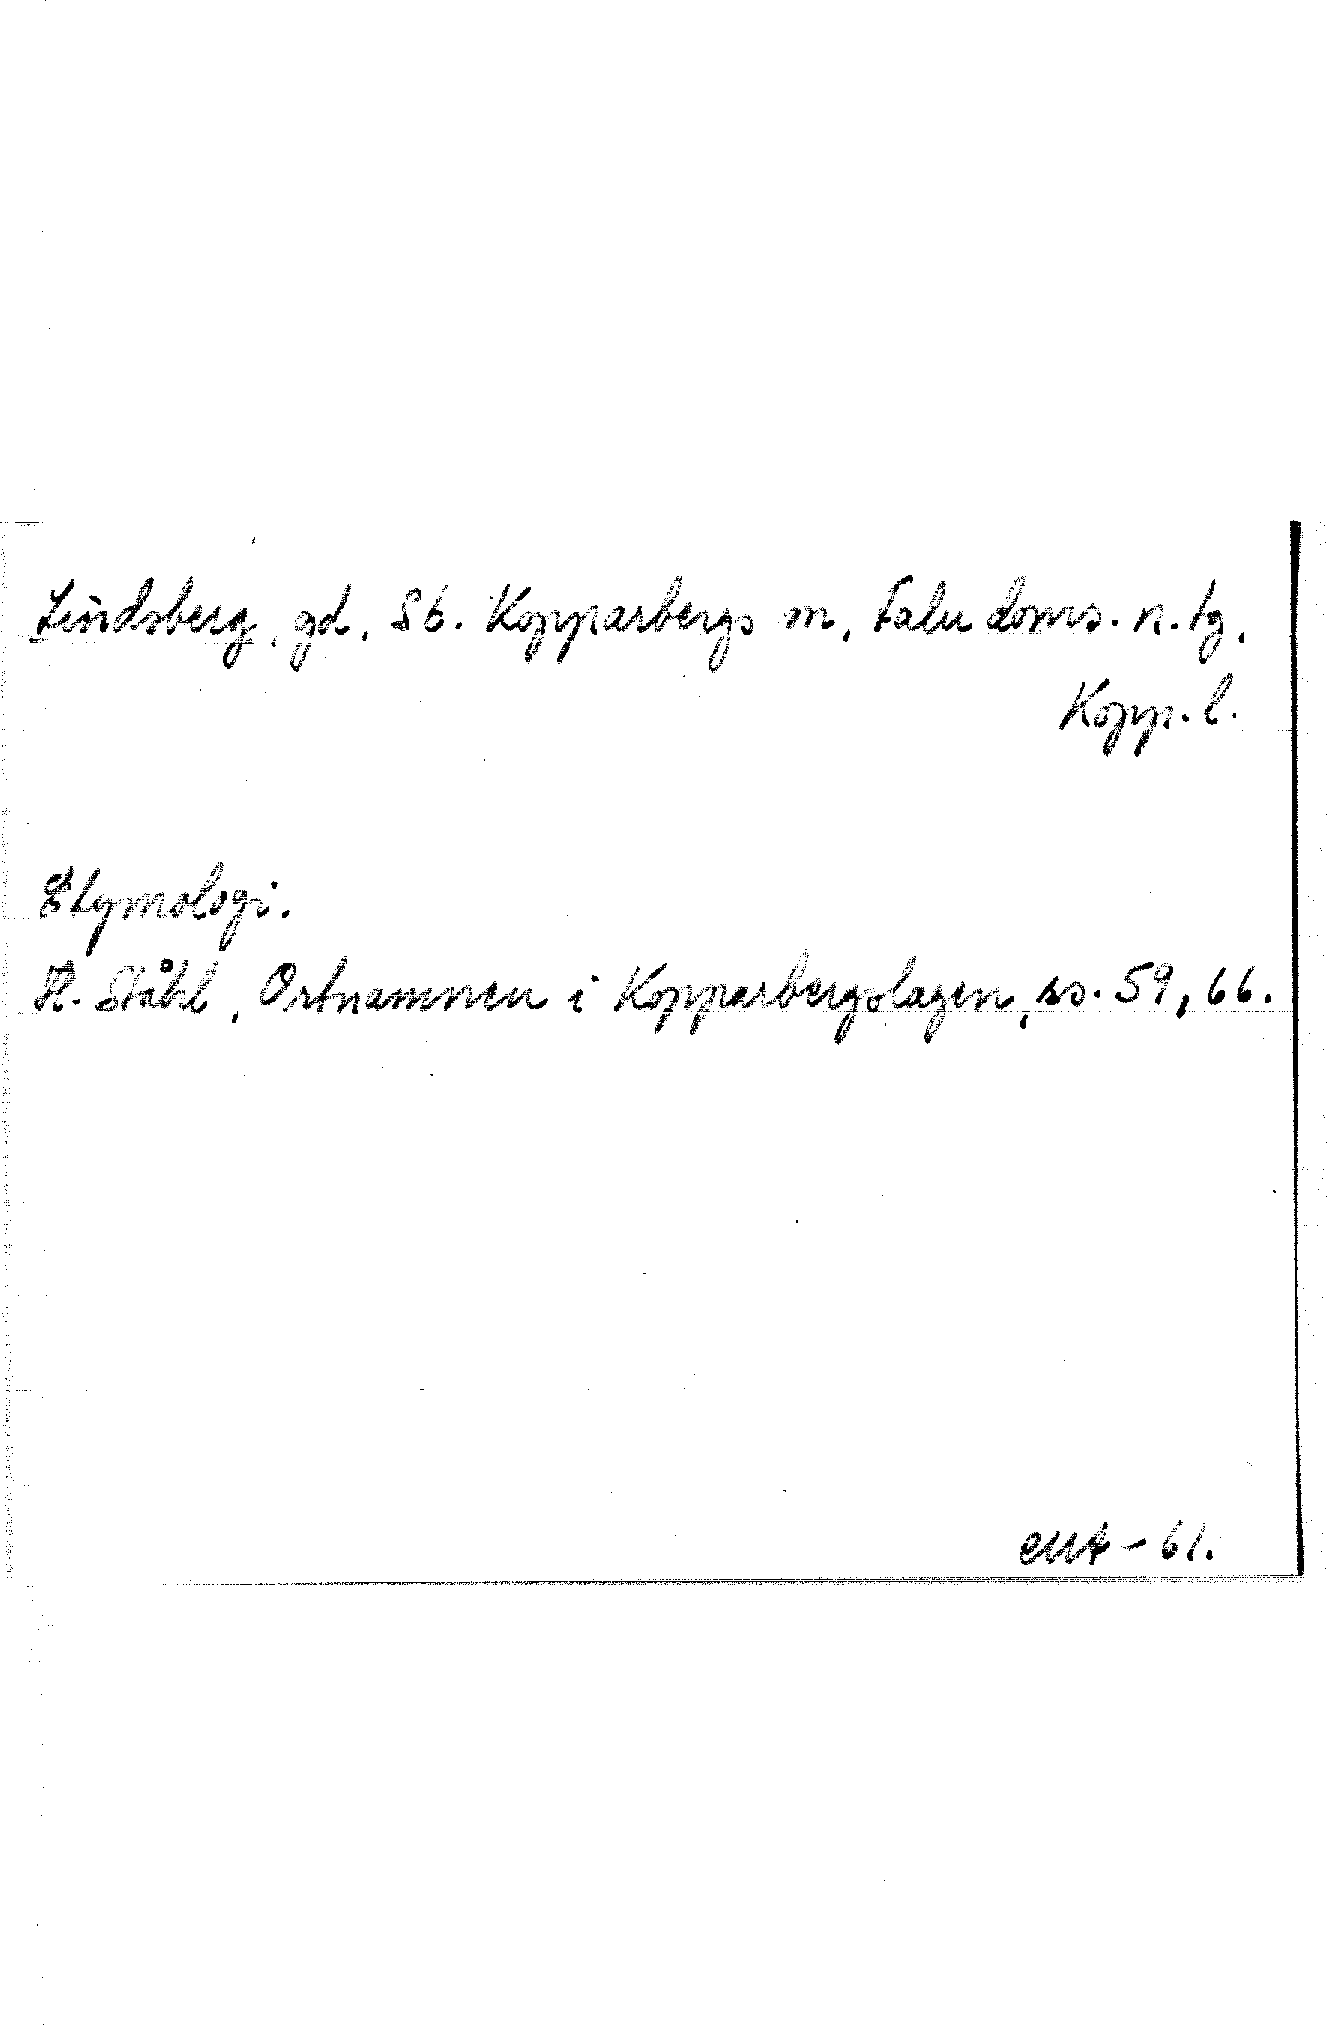 Lindsberg, gd, St. Kopparbergs sn, Falu doms. n. tg,
Kopp. l.
Etymologi.
H. Ståhl, Ortnamnen i Kopparbergslagen, ss. 59, 66.
EMA - 61.